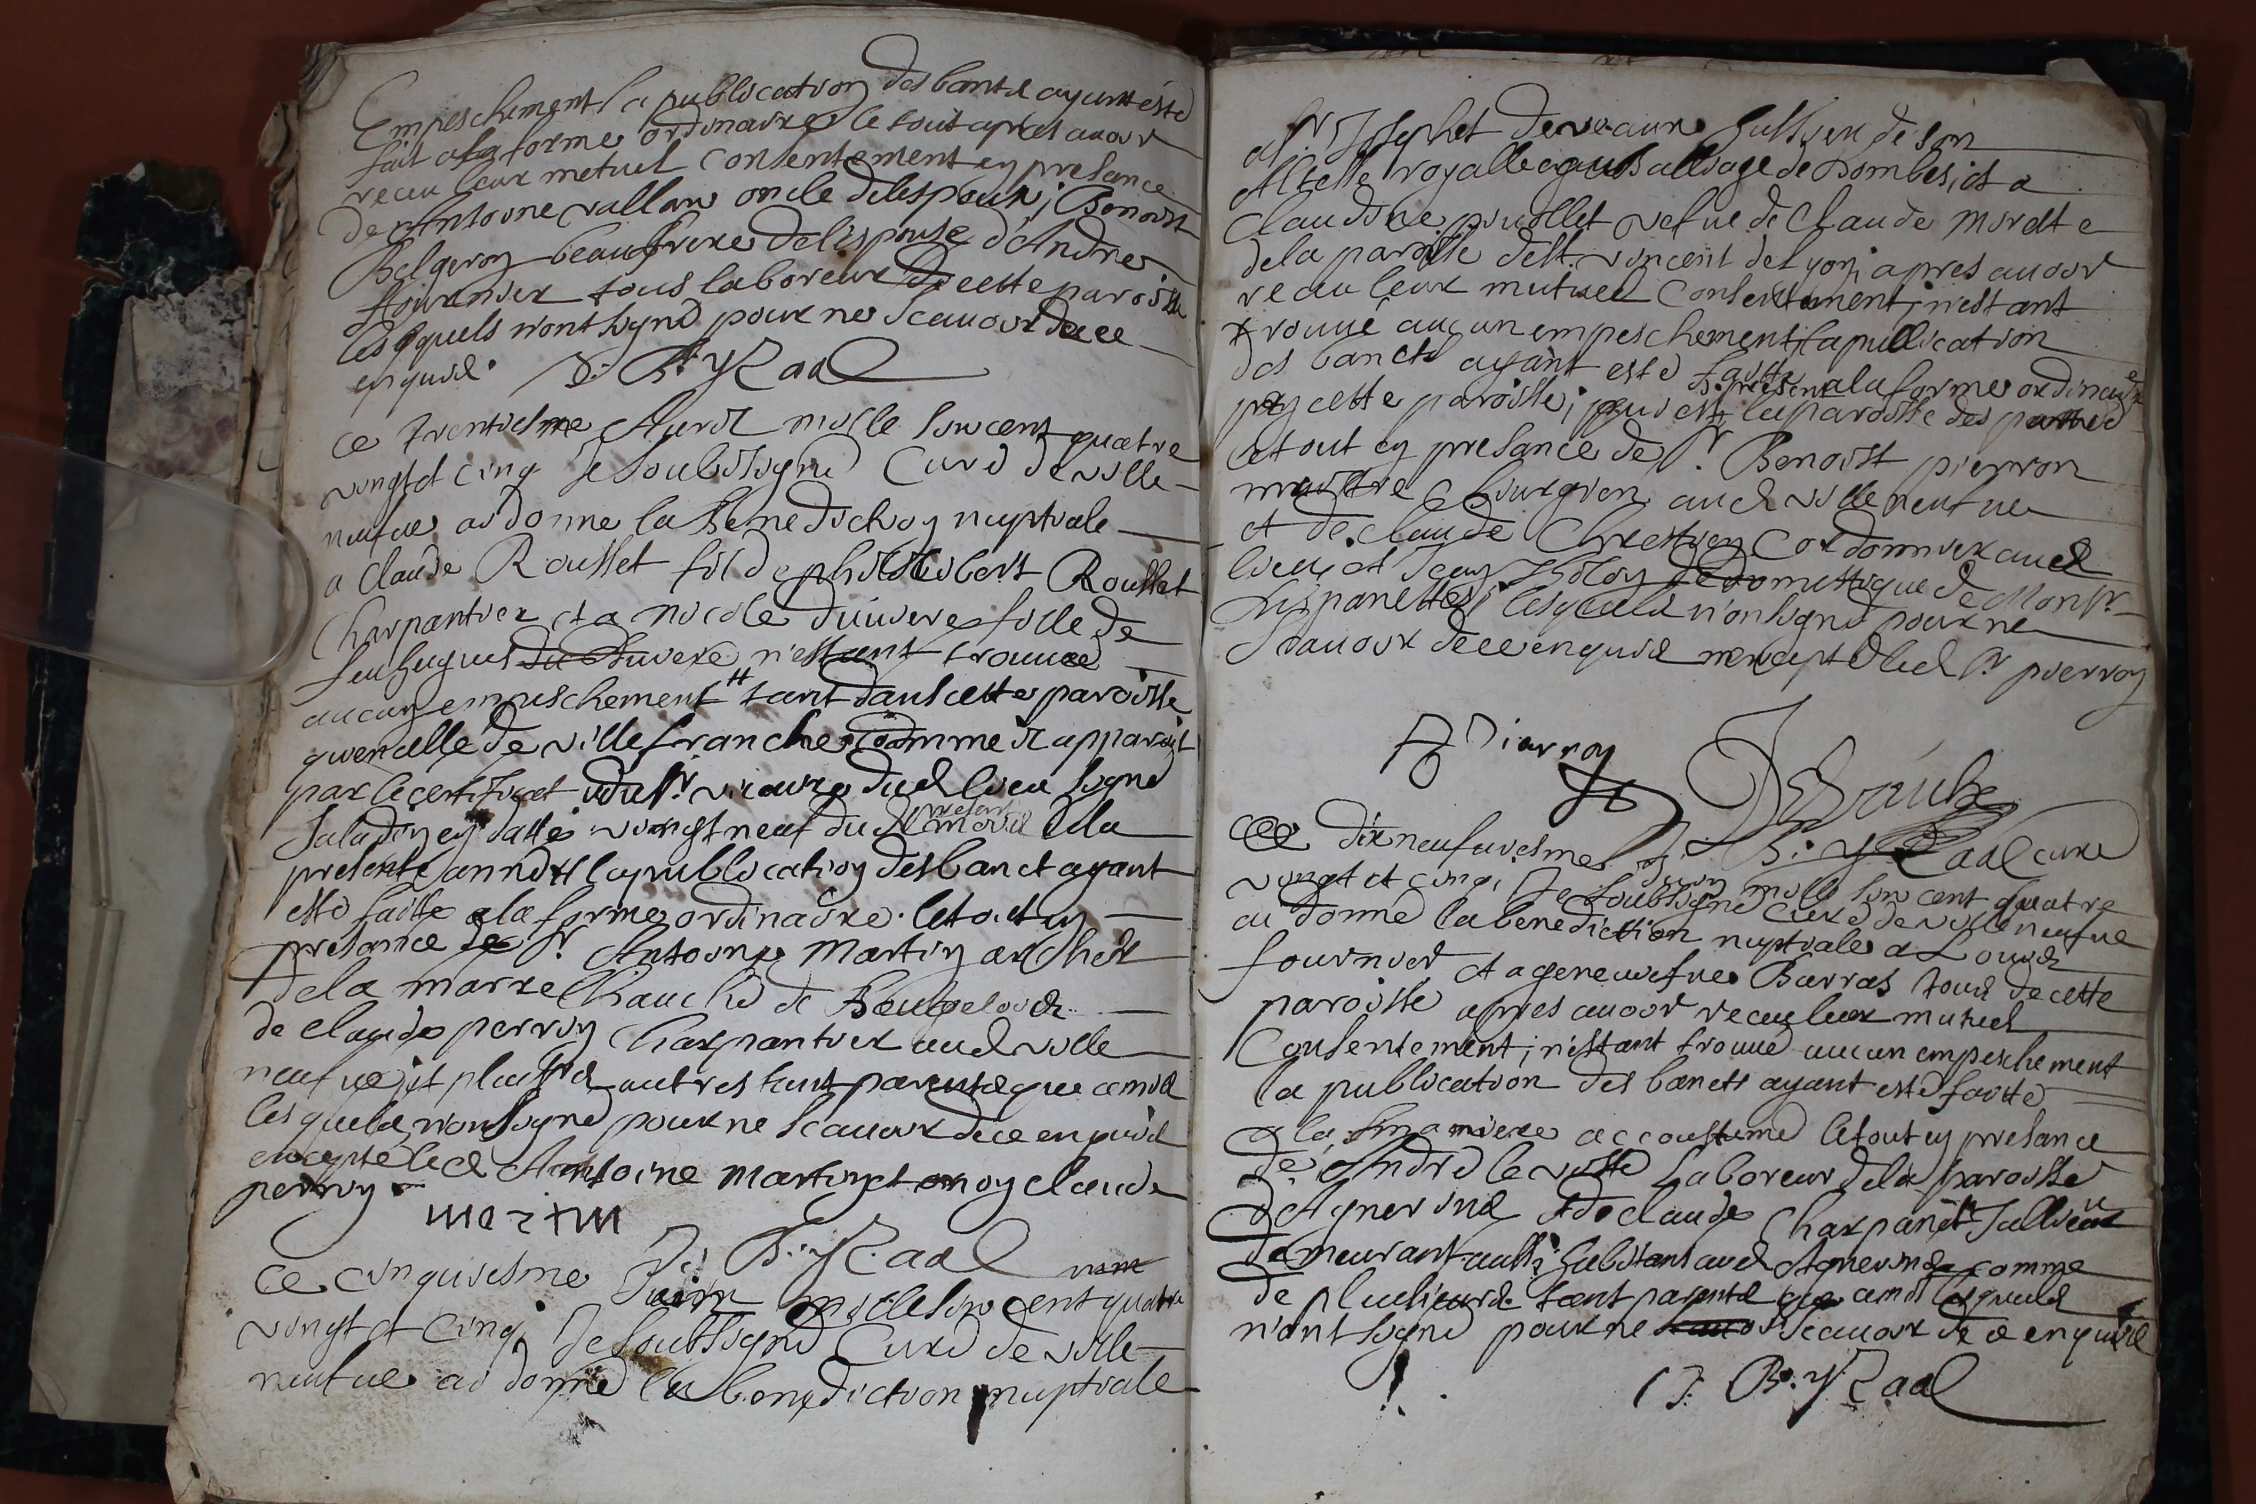 Empeschement la publication des bantz ayant esté
fait a la forme ordinaire le tout apres avoir
receu leur metuel consentement en presance
de Anthoine vallan oncle de lespoux ; Benoist
Belgeron beaufrere de lespouse d'Andre
fournier tous laboreur de cette paroisse
lesquels n'ont signé pour ne scavoir de ce
enquis. B. yzaal
Ce trentiesme Apvril mille six cent quatre
vingt et cinq Je soubsigné Curé de ville
neufve ai donne la Benediction nuptiale
a Claude Rousset fils de philibert Rousset
Charpantier et a nicole duivere fille de
feu hugues du duvere n'estant trouvée
aucun empeschement tant dans cette paroisse
qu'en celle de villefranche comme il apparoit
par le certificat du sr vicaire dud lieu signé
Saladin en datte vingt neuf dud present mois
de la
presente année la publication des banct ayant
esté faitte a la forme ordinaire. le tout en
presance de sr. Antoine Martin archer
de la marrechaucié de Beugelois
de claude perrin Charpantier aud ville
neufve ; et plusieurs autres tant parents que amis
lesquels n'ont signé pour ne scavoir de ce enquis
excepté led Antoine Martin et non claude
perrin.
martin
B. yzaal
Ce cinquiesme Juin mille six cent quatre
vingt et cinq. Je soubsigné Curé de ville
neufve ai donné la benediction nuptiale
a sr. Josephet deveaure huissier de son
Altesse royalle au balliage de Dombes, et a
Claudine pinollet vefve de Claude moret
de la paroisse de st. vincent de Lyon ; apres avoir
receu leur mutuel consentement ; n'estant
trouvé aucun empeschement, la publication
des bancts ayant esté faitte a la forme ordinaire
en cette paroisse ; qui est a present la paroisse des parties
le tout en presance de sr. Benoist pierron
maistre chirurgien aud villeneufve
et de claude Chrestien Cordonnier aud
lieu, et Jean domestique de Monsr.
lesquels n'on signé pour ne
scavoir de ce enquis excepté led sr pierron
B Pierron
B. yzaal curé
Ce dix neufviesme Juin mille six cent quatre
vingt et cinq. Je soubsigné Curé de villeneufve
ai donné la benediction nuptiale a Louis
fournier et a genevefve Barras tous de cette
paroisse apres avoir receu leur mutuel
Consentement ; n'estant trouvé aucun empeschement
la publication des bancts ayant esté faitte
a la maniere accoustumé le tout en presance
de André le viste Laboreur de la paroisse
d'Agnerins et de claude Charpanet
demeurant aussi habitant aud Agnerins comme
de plusieurs tant parents que amis lesquels
n'ont signé pour ne scavoir de ce enquis
B. yzaal